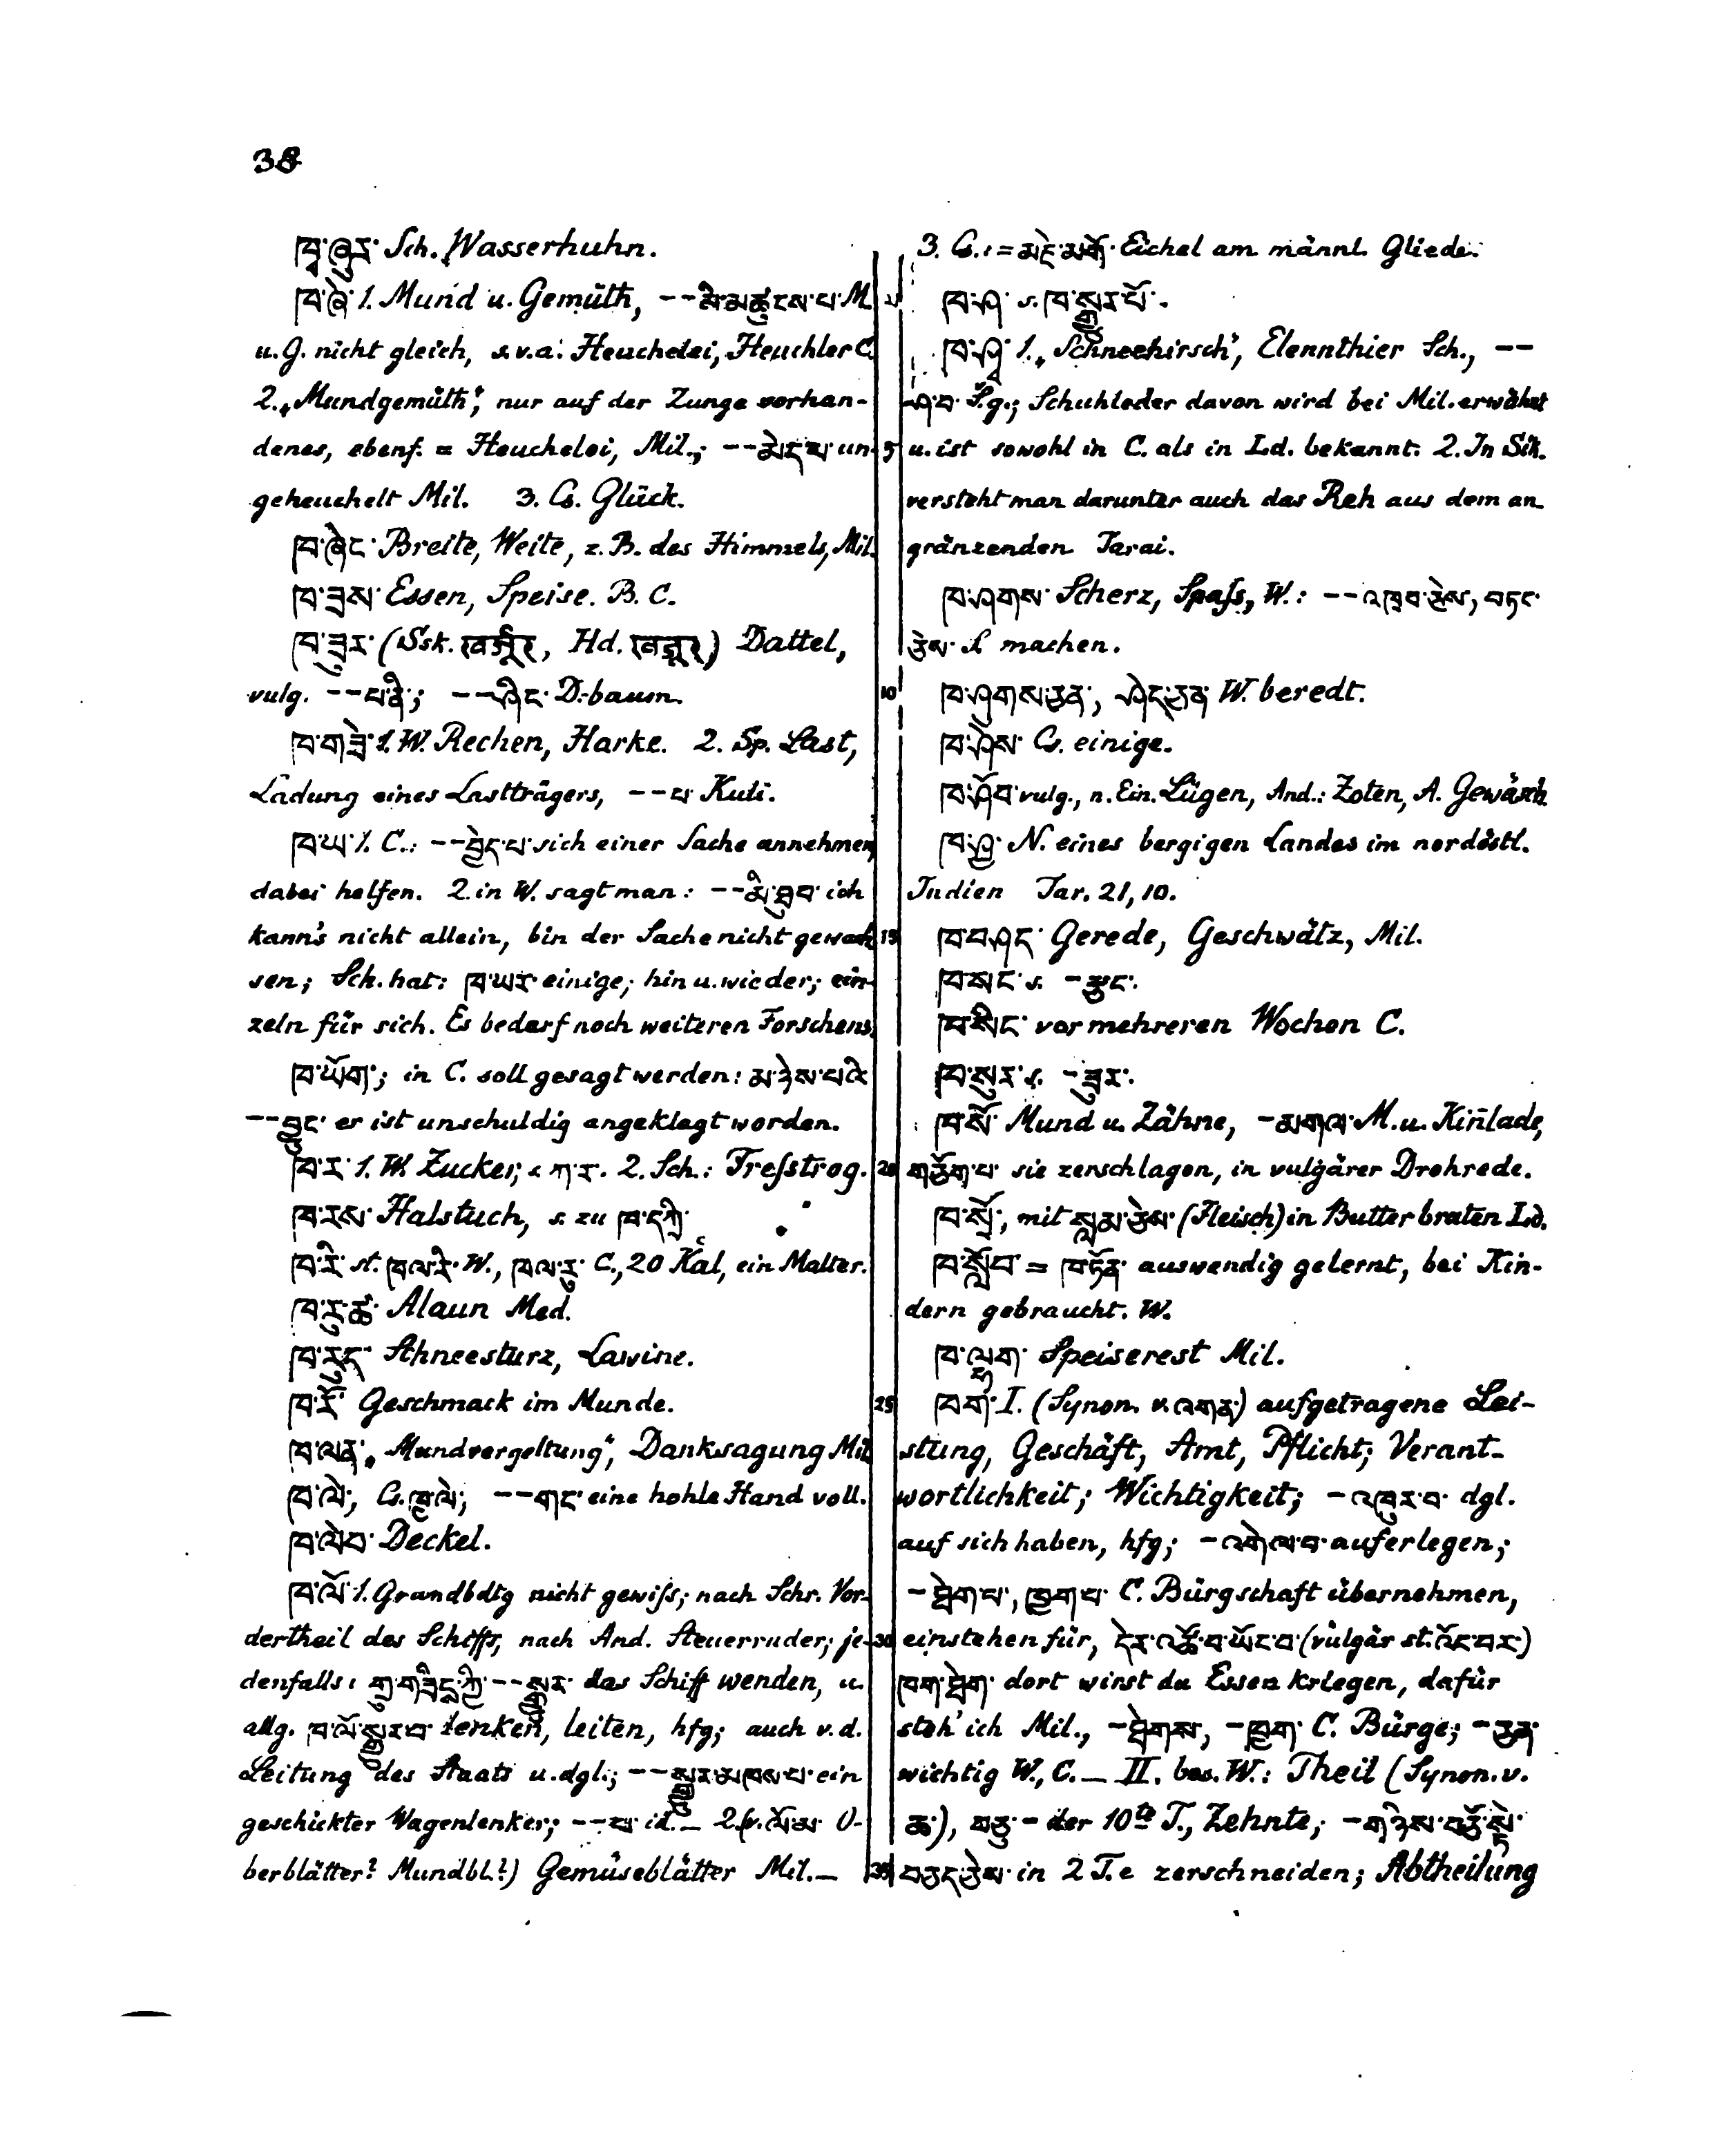 38
ཁྭ་ཞུར་ Sch. Wasserhuhn.
ཁ་ཞེ་ 1. Mund u. Gemüth, --མི་མཚུངས་པ་ M.
u. G. nicht gleich, s.v.a. Heuchelei, Heuchler C.
2. „Mundgemüth“, nur auf der Zunge vorhan-
denes, ebenf. = Heuchelei, Mil.; --མེད་པར་ un-
geheuchelt Mil. 3. Cs. Glück.
ཁ་ཞེང་ Breite, Weite, z. B. des Himmels, Mil.
ཁ་ཟས་ Essen, Speise. B. C.
ཁ་ཟུར་ (Ssk. खर्जूर, Hd. खजूर) Dattel,
vulg. --པ་ནི་; --ཤིང་ D.-baum.
ཁ་གཟེ་ 1. W. Rechen, Harke. 2. Sp. Last,
Ladung eines Lastträgers, --པ་ Kuli.
ཁ་ཡ་ 1. C.: --བྱེད་པ་ sich einer Sache annehmen,
dabei helfen. 2. in W. sagt man: --མི་ཐུབ་ ich
kann's nicht allein, bin der Sache nicht gewach-
sen; Sch. hat: ཁ་ཡར་ einige; hin u. wieder; ein-
zeln für sich. Es bedarf noch weiteren Forschens.
ཁ་ཡོག་; in C. soll gesagt werden: མ་ཉེས་པའི་
--བྱུང་ er ist unschuldig angeklagt worden.
ཁ་ར་ 1. W. Zucker, < ཀ་ར་. 2. Sch.: Freſstrog.
ཁ་རས་ Halstuch, s. zu ཁ་དཀྲི་
ཁ་རི་ st. ཁལ་རི་ W., ཁལ་རུ་ C., 20 K'al, ein Malter.
ཁ་རུ་ཚྭ་ Alaun Med.
ཁ་རུད་ Schneesturz, Lawine.
ཁ་རོ་ Geschmack im Munde.
ཁ་ལན་ „Mundvergeltung“, Danksagung Mil.
ཁ་ལེ་, Cs. ཁྱ་ལེ་; --གང་ eine hohle Hand voll.
ཁ་ལེབ་ Deckel.
ཁ་ལོ་ 1. Grundbdtg nicht gewiſs; nach Schr. Vor-
dertheil des Schiffs, nach And. Steuerruder; je-
denfalls: གྲུ་གཟིངས་ཀྱི་ --སྒྱུར་ das Schiff wenden, u.
allg. ཁ་ལོ་སྒྱུར་བ་ lenken, leiten, hfg; auch v. d.
Leitung des Staats u. dgl.; --སྒྱུར་མཁས་པ་ ein
geschickter Wagenlenker; --པ་ id. — 2. (v. ལོ་མ་ O-
berblätter? Mundbl.?) Gemüseblätter Mil. —
3. Cs.: = མཇེ་མགོ་ Eichel am männl. Gliede.
ཁ་ཤ་ s. ཁ་སྒྱུར་པོ་.
ཁ་ཤྭ་ 1. „Schneehirsch“, Elennthier Sch., --
ཤ་བ་ S̆.g.; Schuhleder davon wird bei Mil. erwähnt
u. ist sowohl in C. als in Ld. bekannt. 2. In Sik.
versteht man darunter auch das Reh aus dem an-
gränzenden Tarai.
ཁ་ཤགས་ Scherz, Spaſs, W.: --འཁྲབ་ཅེས་, བཏང་
ཅེས་ S. machen.
ཁ་ཤུགས་ཅན་, ཤེད་ཅན་ W. beredt.
ཁ་ཤེས་ Cs. einige.
ཁ་ཤོབ་ vulg., n. Ein. Lügen, And.: Zoten, A. Gewäsch.
ཁ་ཤྱ་ N. eines bergigen Landes im nordöstl.
Indien Tar. 21, 10.
ཁ་བཤད་ Gerede, Geschwätz, Mil.
ཁ་སང་ s. -རྩང་.
ཁ་སིང་ vor mehreren Wochen C.
ཁ་སུར་ s. -ཟུར་.
ཁ་སོ་ Mund u. Zähne, -མགལ་ M. u. Kin̄lade,
གཅོག་པ་ sie zerschlagen, in vulgärer Drohrede.
ཁ་སྲོ་, mit སླམ་ཅེས་ (Fleisch) in Butter braten Ld.
ཁ་སློབ་ = ཁ་ཏོན་ auswendig gelernt, bei Kin-
dern gebraucht. W.
ཁ་ལྷག་ Speiserest Mil.
ཁག་ I. (Synon. v. འགན་) aufgetragene Lei-
stung, Geschäft, Amt, Pflicht; Verant-
wortlichkeit; Wichtigkeit; -འཁུར་བ་ dgl.
auf sich haben, hfg; -འགེལ་བ་ auferlegen;
-ཐེག་པ་, ཁྱག་པ་ C. Bürgschaft übernehmen,
einstehen für, དེར་འཚོ་བ་ཡོང་བ་ (vulgär st. འོང་བར་)
ཁག་ཐེག་ dort wirst du Essen kriegen, dafür
steh' ich Mil., -ཐེགས་, -ཁྱག་ C. Bürge; -ཅན་
wichtig W., C. — II. bes. W.: Theil (Synon. v.
ཆ་), བཅུ་- der 10te T., Zehnte; -གཉིས་བཅོ་སྟེ་
བཅད་ཅེས་ in 2 T.e zerschneiden; Abtheilung